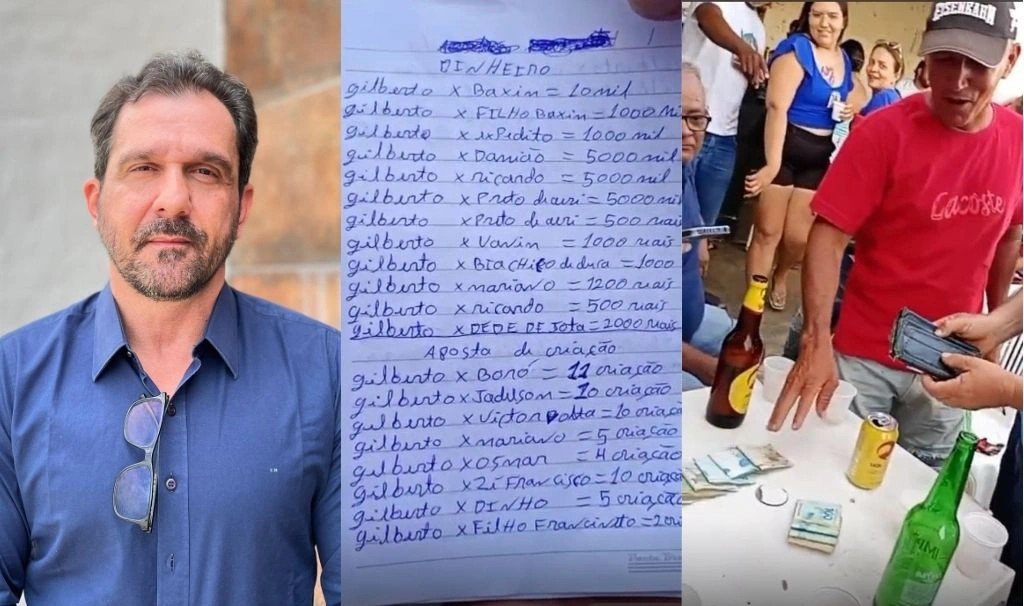 DINHEIRO
gilberto x Baxin = 10 mil
gilberto x FILHO Baxin = 1000 M
gilberto x 1x Pedito = 1000 mil
gilberto x Damião = 5000 mil
gilberto x ricardo = 5000 mil
gilberto x Preto de auri = 5000 mi
gilberto x Preto de auri = 500 reais
gilberto x Vavin = 1000 reais
gilberto x BIACHico de dura = 1000
gilberto x mariano = 1200 reais
gilberto x ricardo = 500 reais
gilberto x DEDE DE Jota = 2000 reais
Aposta de criação
gilberto x Boró = 11 criação
gilberto x Jadilson = 10 criação
gilberto x Victor Volta = 10 criaçã
gilberto x mariano = 5 criação
gilberto x osmar = 4 criação
gilberto x Zé Francisco = 10 criaçã
gilberto x DINHO = 5 criação
gilberto x Filho Francinsto = 2 cri
EISENBAHN
Lacoste